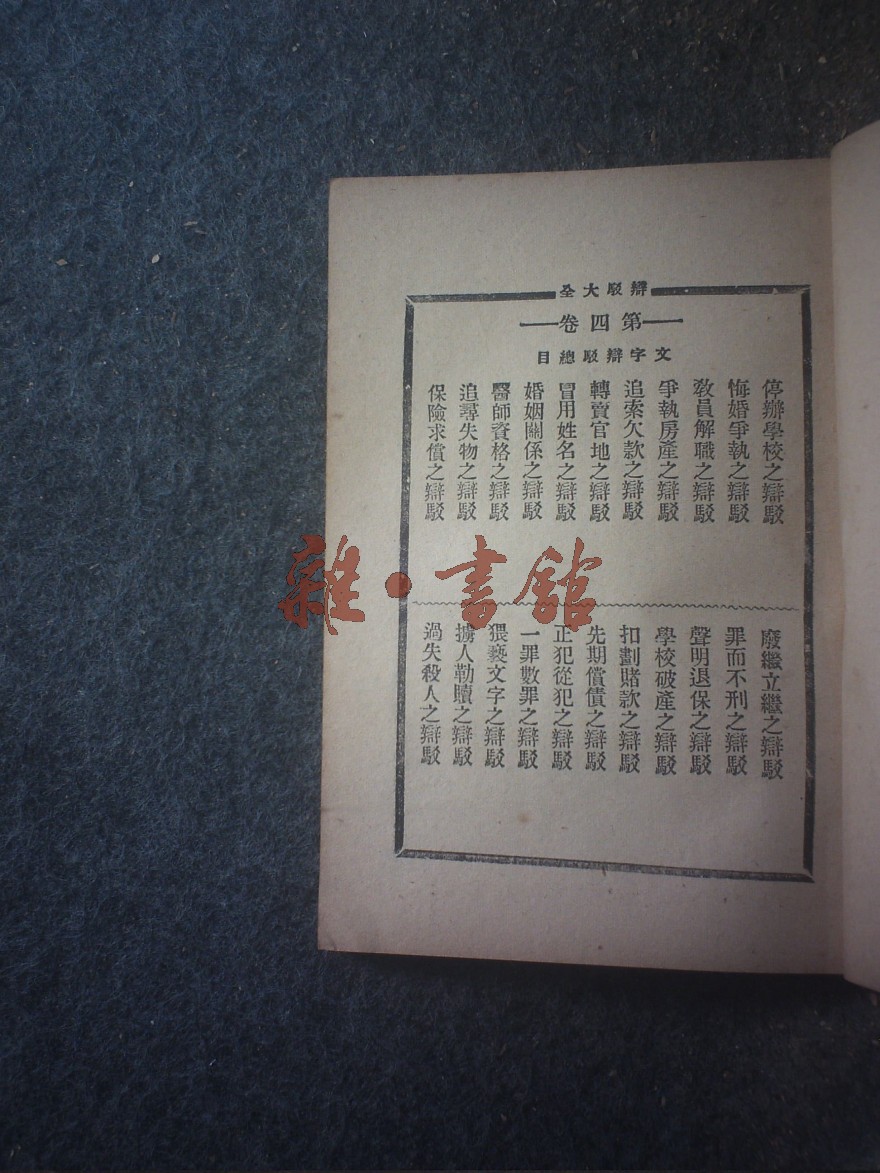 辯駁大全
第四卷
文字辯駁總目
停辦學校之辯駁
悔婚爭執之辯駁
敎員解職之辯駁
爭執房產之辯駁
追索欠款之辯駁
轉賣官地之辯駁
冒用姓名之辯駁
婚姻關係之辯駁
醫師資格之辯駁
追尋失物之辯駁
保險求償之辯駁
廢繼立繼之辯駁
罪而不刑之辯駁
聲明退保之辯駁
學校破產之辯駁
扣劃賭款之辯駁
先期償債之辯駁
正犯從犯之辯駁
一罪數罪之辯駁
猥褻文字之辯駁
擄人勒贖之辯駁
過失殺人之辯駁
雜·書館